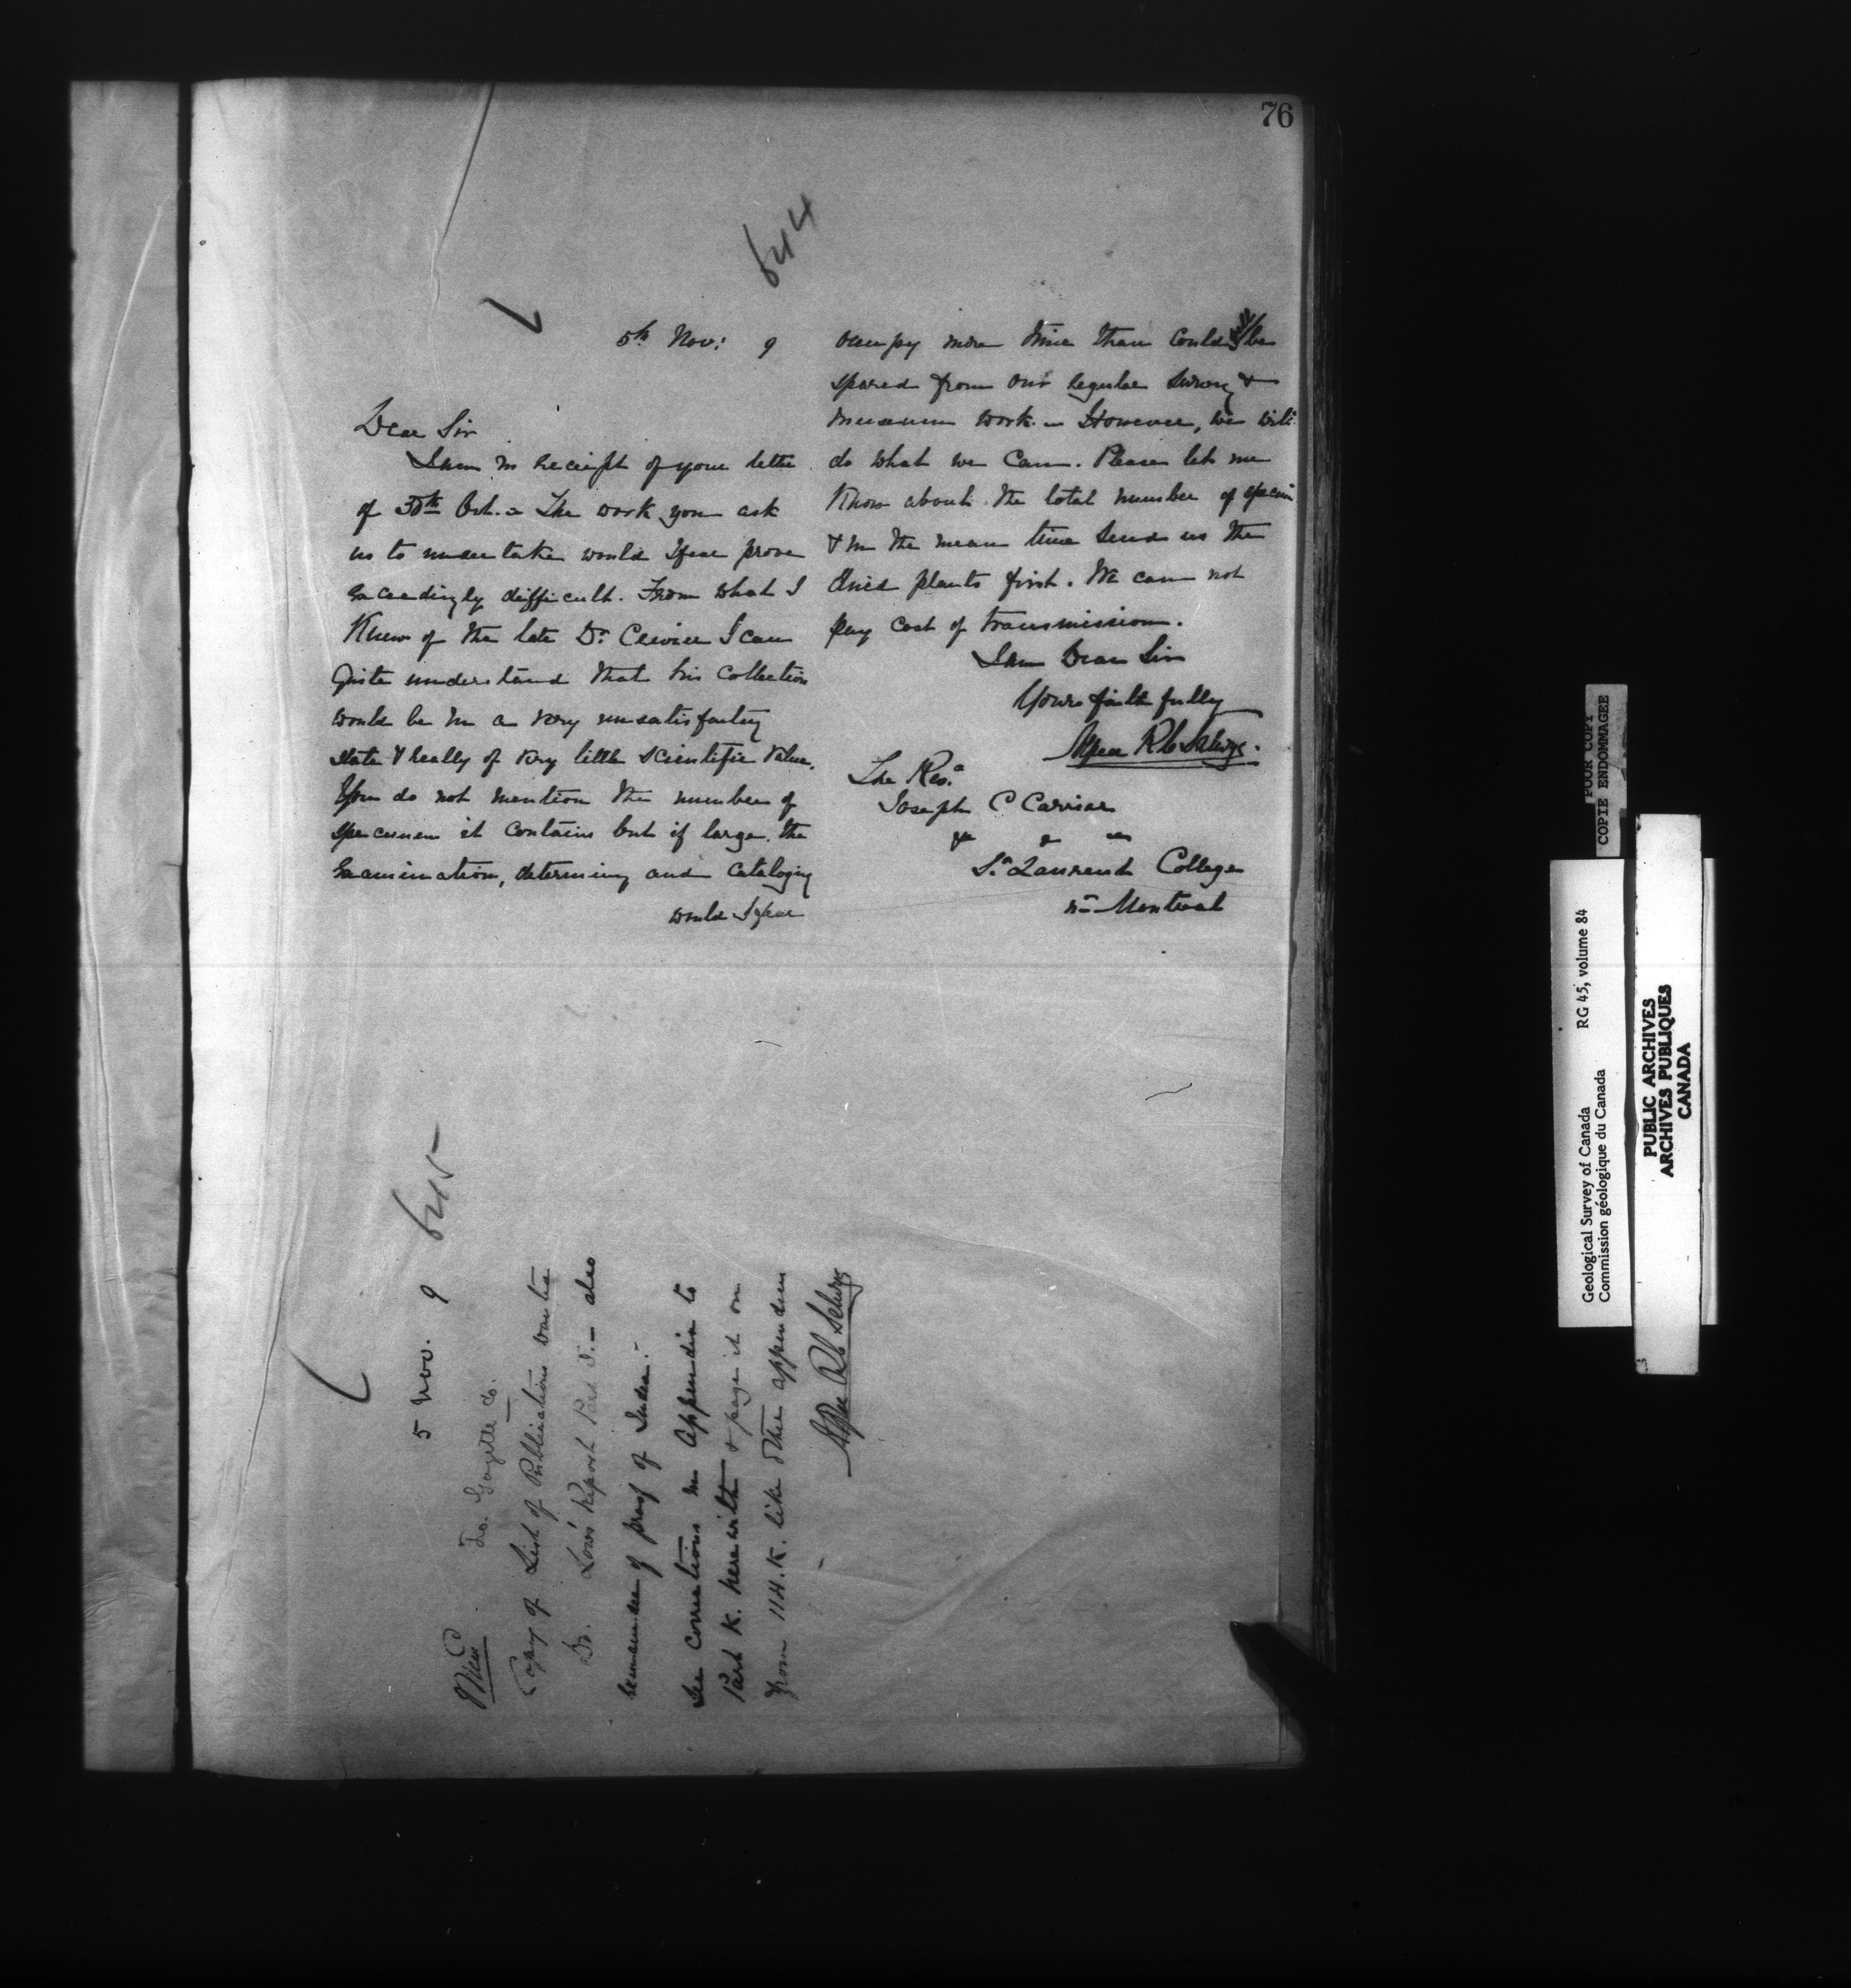 76
644
5th Nov: 9
Dear Sir
I am in receipt of your letter
of 30th Oct. - The work you ask
us to undertake would I fear prove
exceedingly difficult. From what I
Knew of the late Dr. I can
quite understand that his collection
would be in a very unsatisfactory
state & really of very little scientific value.
You do not mention the number of
specimen it contains but if large, the
Examination, determining and Cataloging
would I fear
occupy more time than could well be
spared from our regular Survey &
museum work - However, we will
do what we can. Please let me
Know about the total number of specim
& in the mean time send us the
dried plants first. We can not
pay cost of transmission.
I am Dear Sir
Yours faithfully
Alfred R C Selwyn.
The Revd
Joseph C Carrier
St Laurent College
nr Montreal
645
5 Nov. 9
To. Gazette Co.
Copy of List of Publications wanted
Do. Low's Report Part J. - also
remainder of proof of Index.
See corrections in Appendix to
Part K. herewith & page it on
from 114.K. like other appendices
Alfred R C Selwyn
POOR COPY
COPIE ENDOMMAGEE
Geological Survey of Canada RG 45, volume 84
Commission géologique du Canada
PUBLIC ARCHIVES
ARCHIVES PUBLIQUES
CANADA